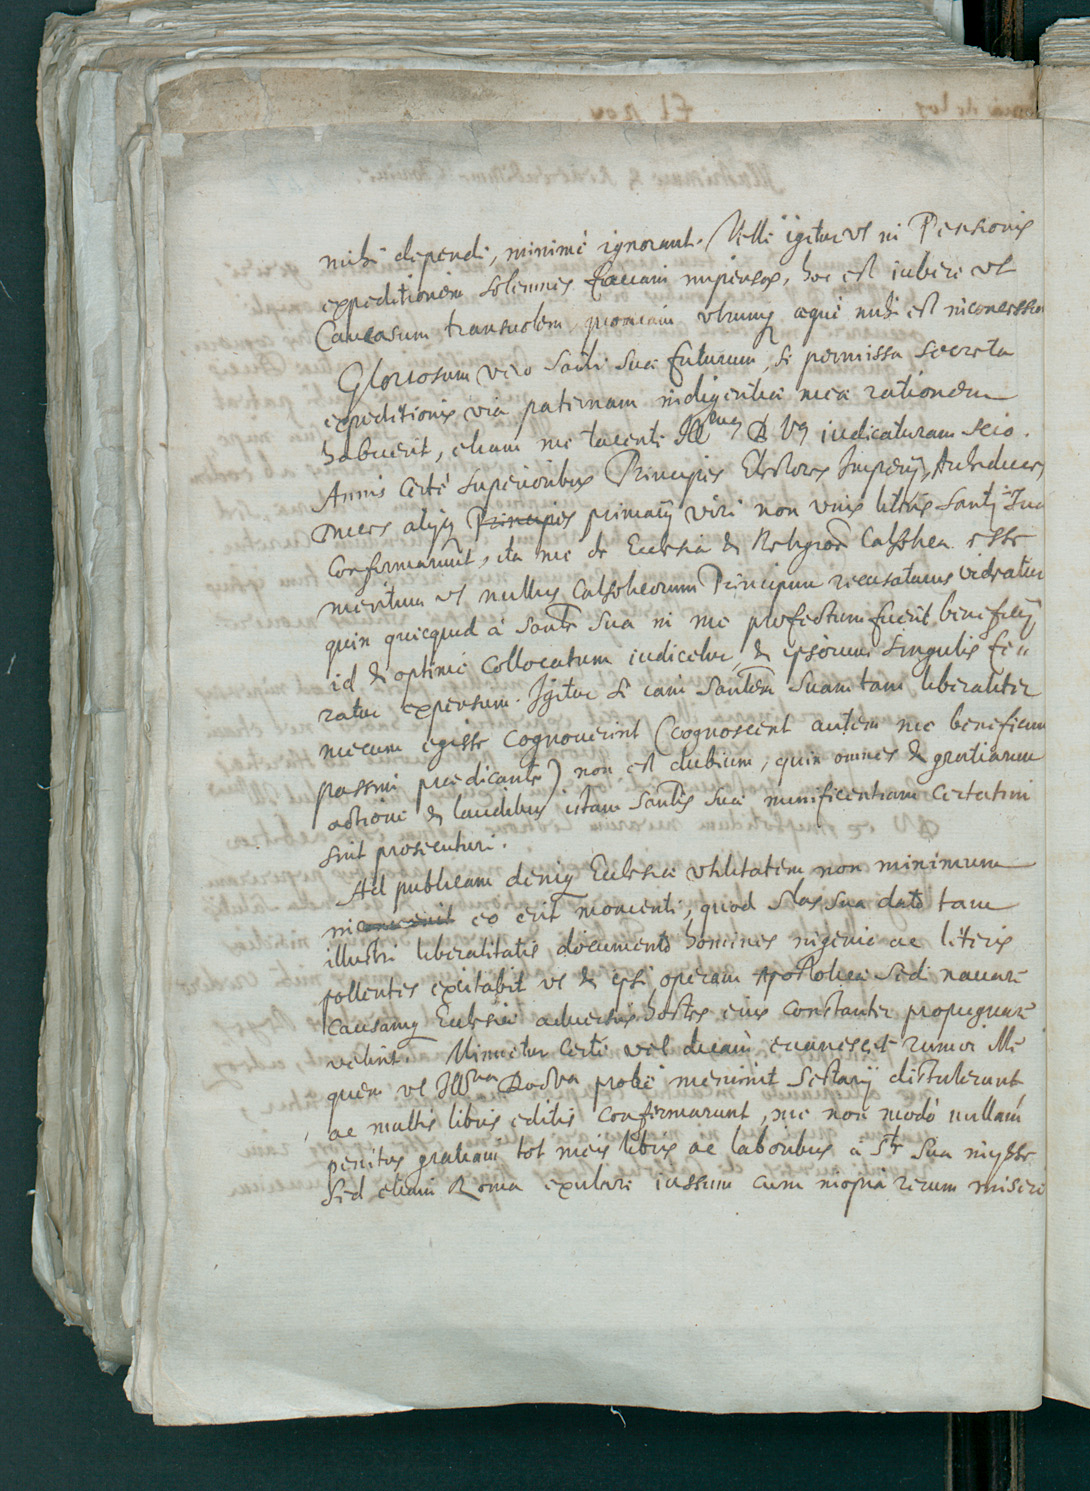 mihi dependi, minimè ignorant. Velle igitur vt in Pensionis
expeditionem solemnes faciam impensas, hoc est iubere vt
Caucasum transuolem, quoniam vtrumq; æquè mihi est inconcessum
Gloriosum vero Sanctti Suæ futurum, si permissa secreta
expeditionis via paternam indigentiæ meæ rationem
habuerit, etiam me tacente Illmam D. Vam iudicaturam scio.
Annis certè superioribus Principes Electores Imperij, Archiduces,
alijq; primarij viri non vnis literis Santj Suæ
confirmarunt, ita me de Ecclesia & Religione Catholica esse
meritum vt nullus Catholicorum Principum recusaturus videatur
quin quicquid à Sante Sua in me profectum fuerit beneficij,
id & optimè collocatum iudicetur, & ipsorum singulis fe„
ratur expensum. Igitur si iam Santem Suam tam liberaliter
mecum egisse cognouerint (cognoscent autem me beneficium
passim prædicante) non est dubium, quin omnes & gratiarum
actione & laudibus istam Santis Suæ munificentiam certatim
sint prosecuturi.
Ad publicam deniq; Ecclesiæ vtilitatem non minimum
eo erit momenti, quod Stas Sua dato tam
illustri liberalitatis documento homines ingenio ac literis
pollentes excitabit vt & ipsi operam Apostolicæ Sedi nauare
causamq; Ecclesiæ aduersus hostes eius constanter propugnare
velint. Minuetur certè vel etiam euanescet rumor ille
quem vt Illma D. Va probè meminit Sectarij distulerunt
ac multis libris editis confirmarunt, me non modò nullam
penitus gratiam tot meis libris ac laboribus à Ste Sua inijsse
sed etiam Roma exulare iussum cum magna rerum miseri